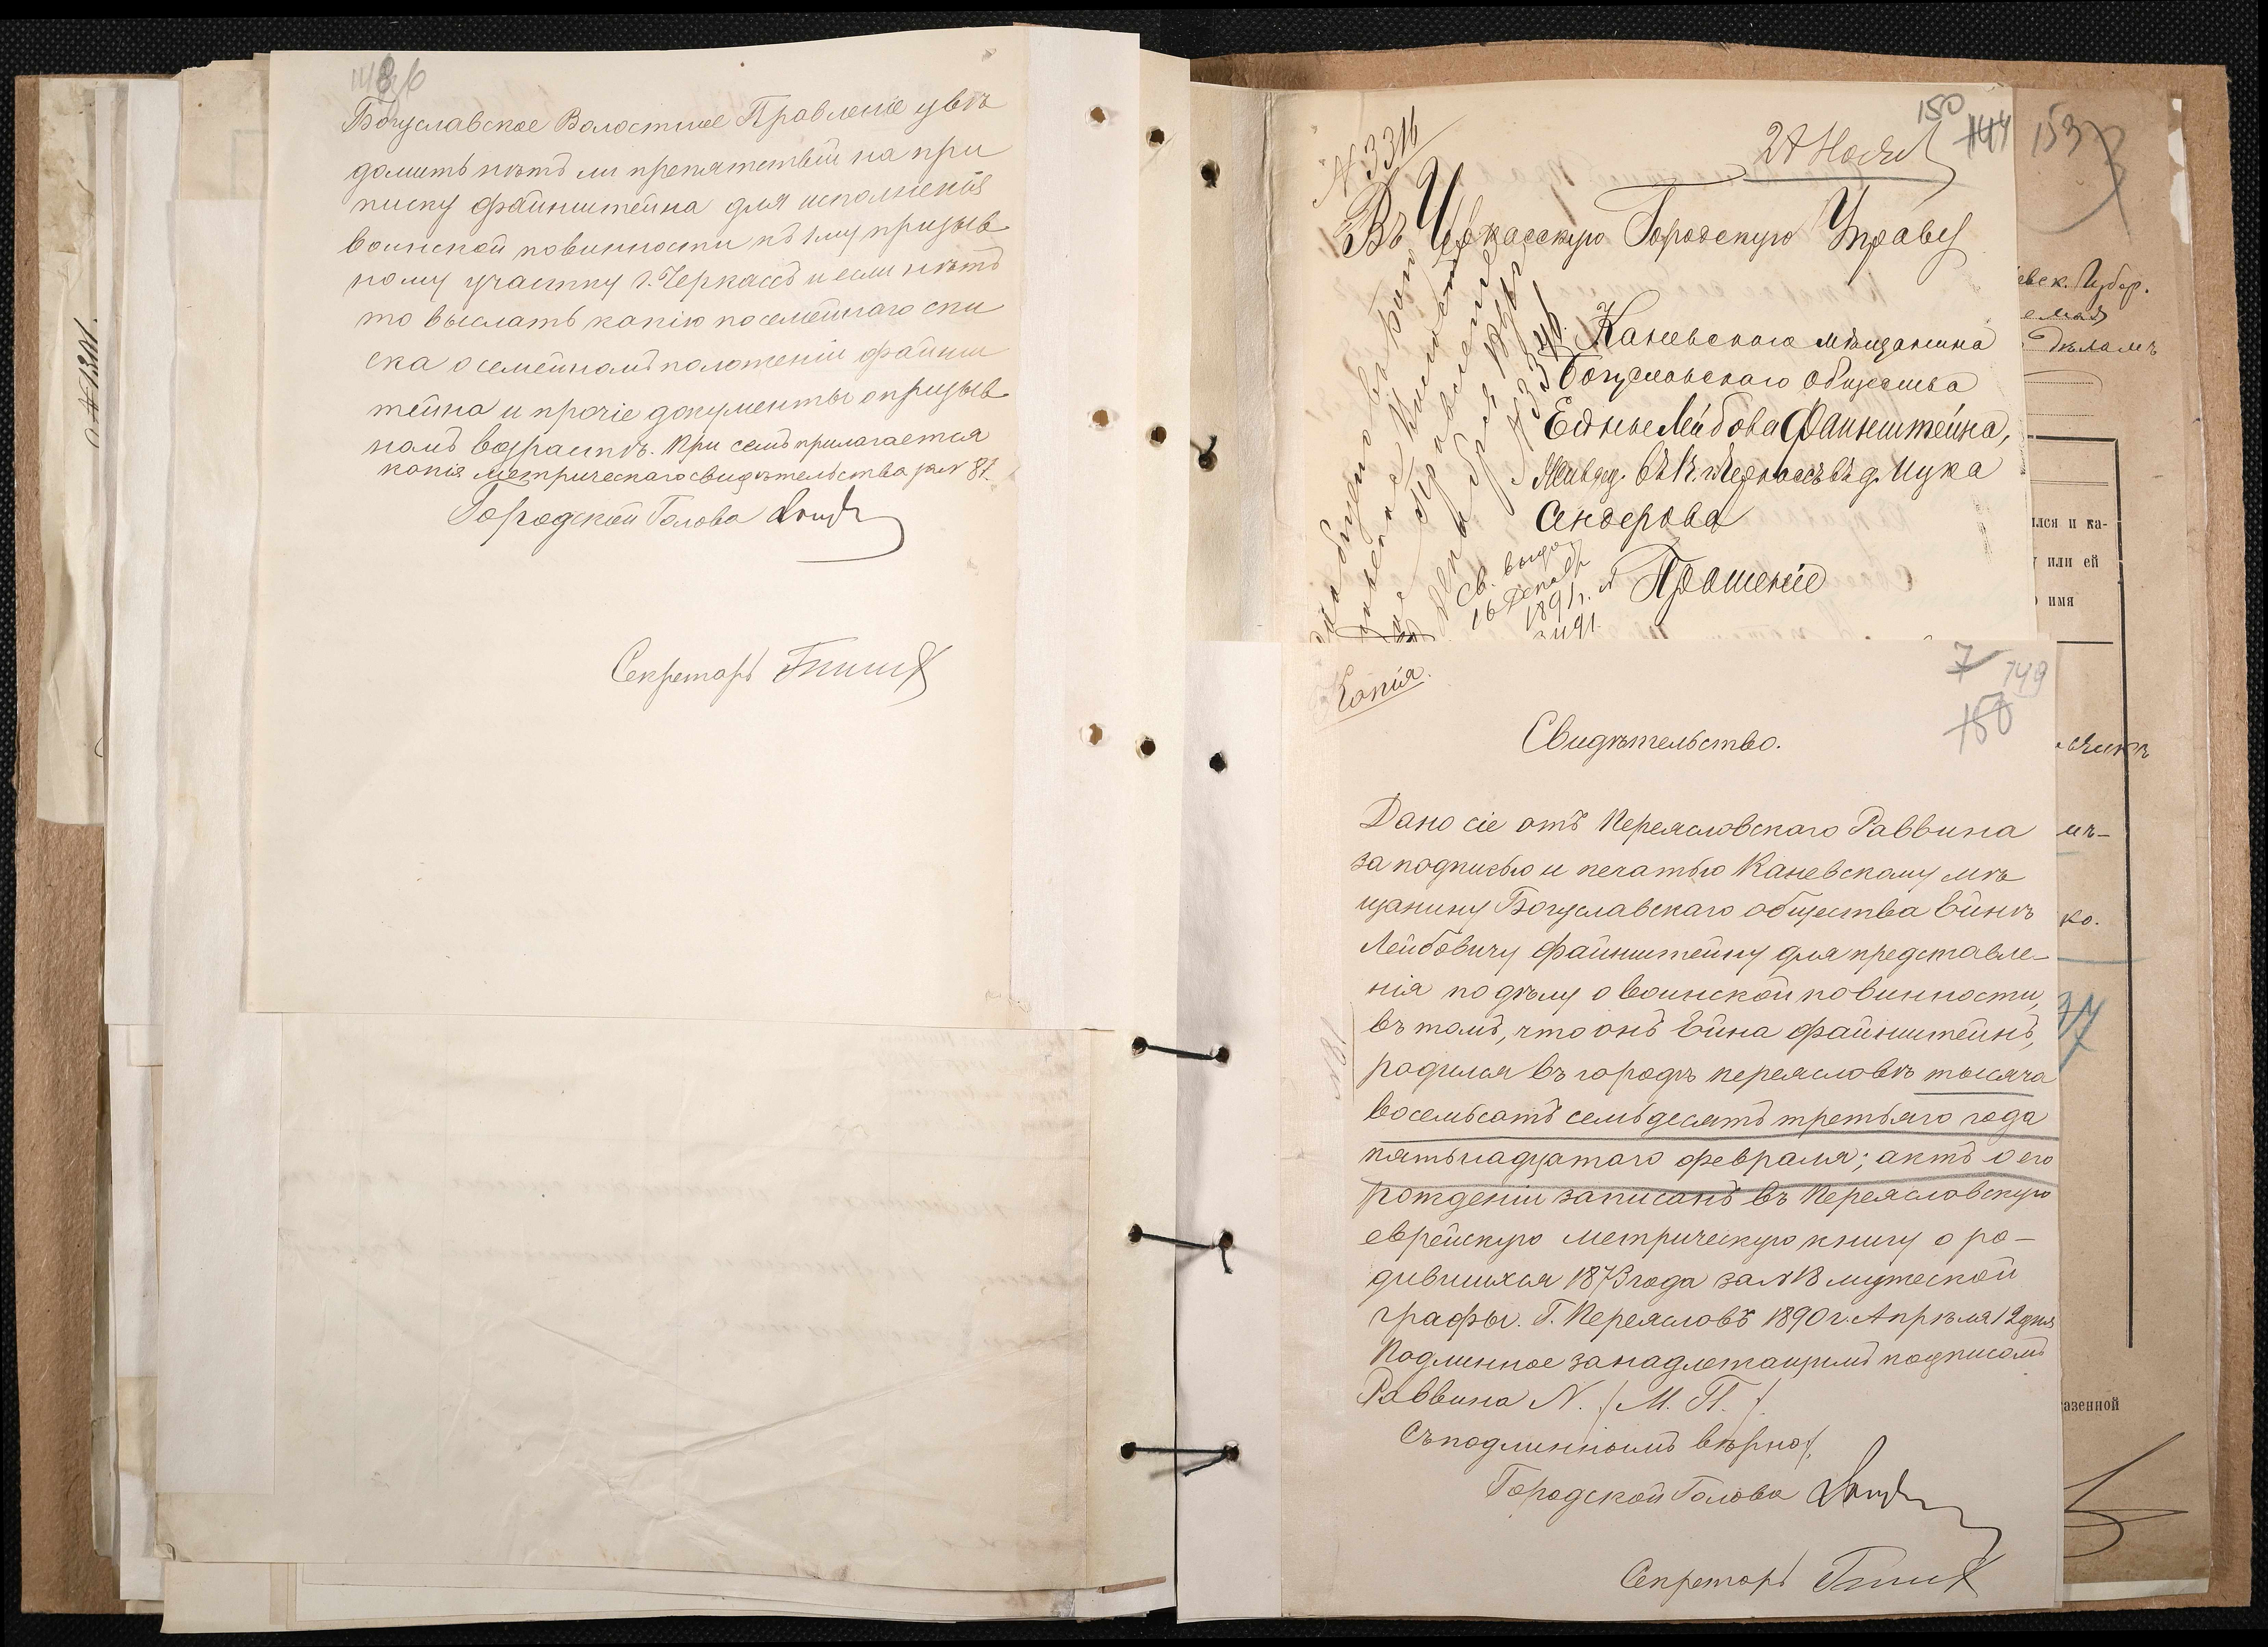 Богуславское Волостное Правленіе увѣ
домить нѣтъ ли препятствій на при
писку Файнштейна для исполненія
воинской повинности къ 1му призыв
ному участку г. Черкассъ и если нѣтъ
то выслать копію посемейнаго спи
ска о семейномъ положеніи Файнш
тейна и прочіе документы о призыв
номъ возрастѣ. При семъ прилагается
копія метрическаго свидѣтельства за № 87.
Городской Голова
Секретарь
150
144
27 Нояб
№ 3316
Въ Черкасскую Городскую Управу
Каневскаго мѣщанина
Богуславскаго общества
Ейны Лейбова Файнштейна,
Живущ. въ г. Черкассахъ въ д. Ицка
Сендерова
Прошеніе
Св. выда
16 Декабр
1891 г. №
3491.
Копія.
7 149
150
Свидѣтельство.
Дано сіе отъ Переяславскаго Раввина
за подписью и печатью Каневскому мѣ
щанину Богуславскаго общества Ейнѣ
Лейбовичу Файнштейну для представле-
нія по дѣлу о воинской повинности,
въ томъ, что онъ Ейна Файнштейнъ,
родился въ городѣ Переяславѣ тысяча
восемьсотъ семьдесятъ третьяго года
пятьнадцатаго февраля; актъ о его
рожденіи записанъ въ Переяславскую
еврейскую метрическую книгу о ро-
дившихся 1873 года за № 18 мужеской
графы. Г. Переяславъ 1890 г. Апрѣля 12 дня
Подлинное за надлежащимъ подписомъ
Раввина N. /М. П./
Съ подлиннымъ вѣрно:
Городской Голова
Секретарь
153
евск. Губер.
дѣламъ
лся и ка-
или ей
имя
ко.
37
азенной